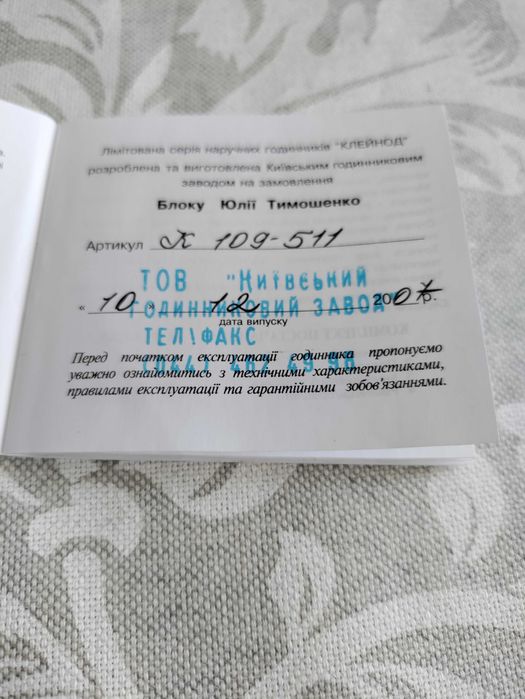 Лімітована серія наручних годинників "КЛЕЙНОД"
розроблена та виготовлена Київським годинниковим
заводом на замовлення
Блоку Юлії Тимошенко
Артикул К 109-511
ТОВ "Київський
" 10 " 12 2007р.
ГОДИННИКОВИЙ ЗАВОД"
дата випуску
ТЕЛ!ФАКС
(044)
Перед початком експлуатації годинника пропонуємо
уважно ознайомитись з технічними характеристиками,
правилами експлуатації та гарантійними зобов'язаннями.